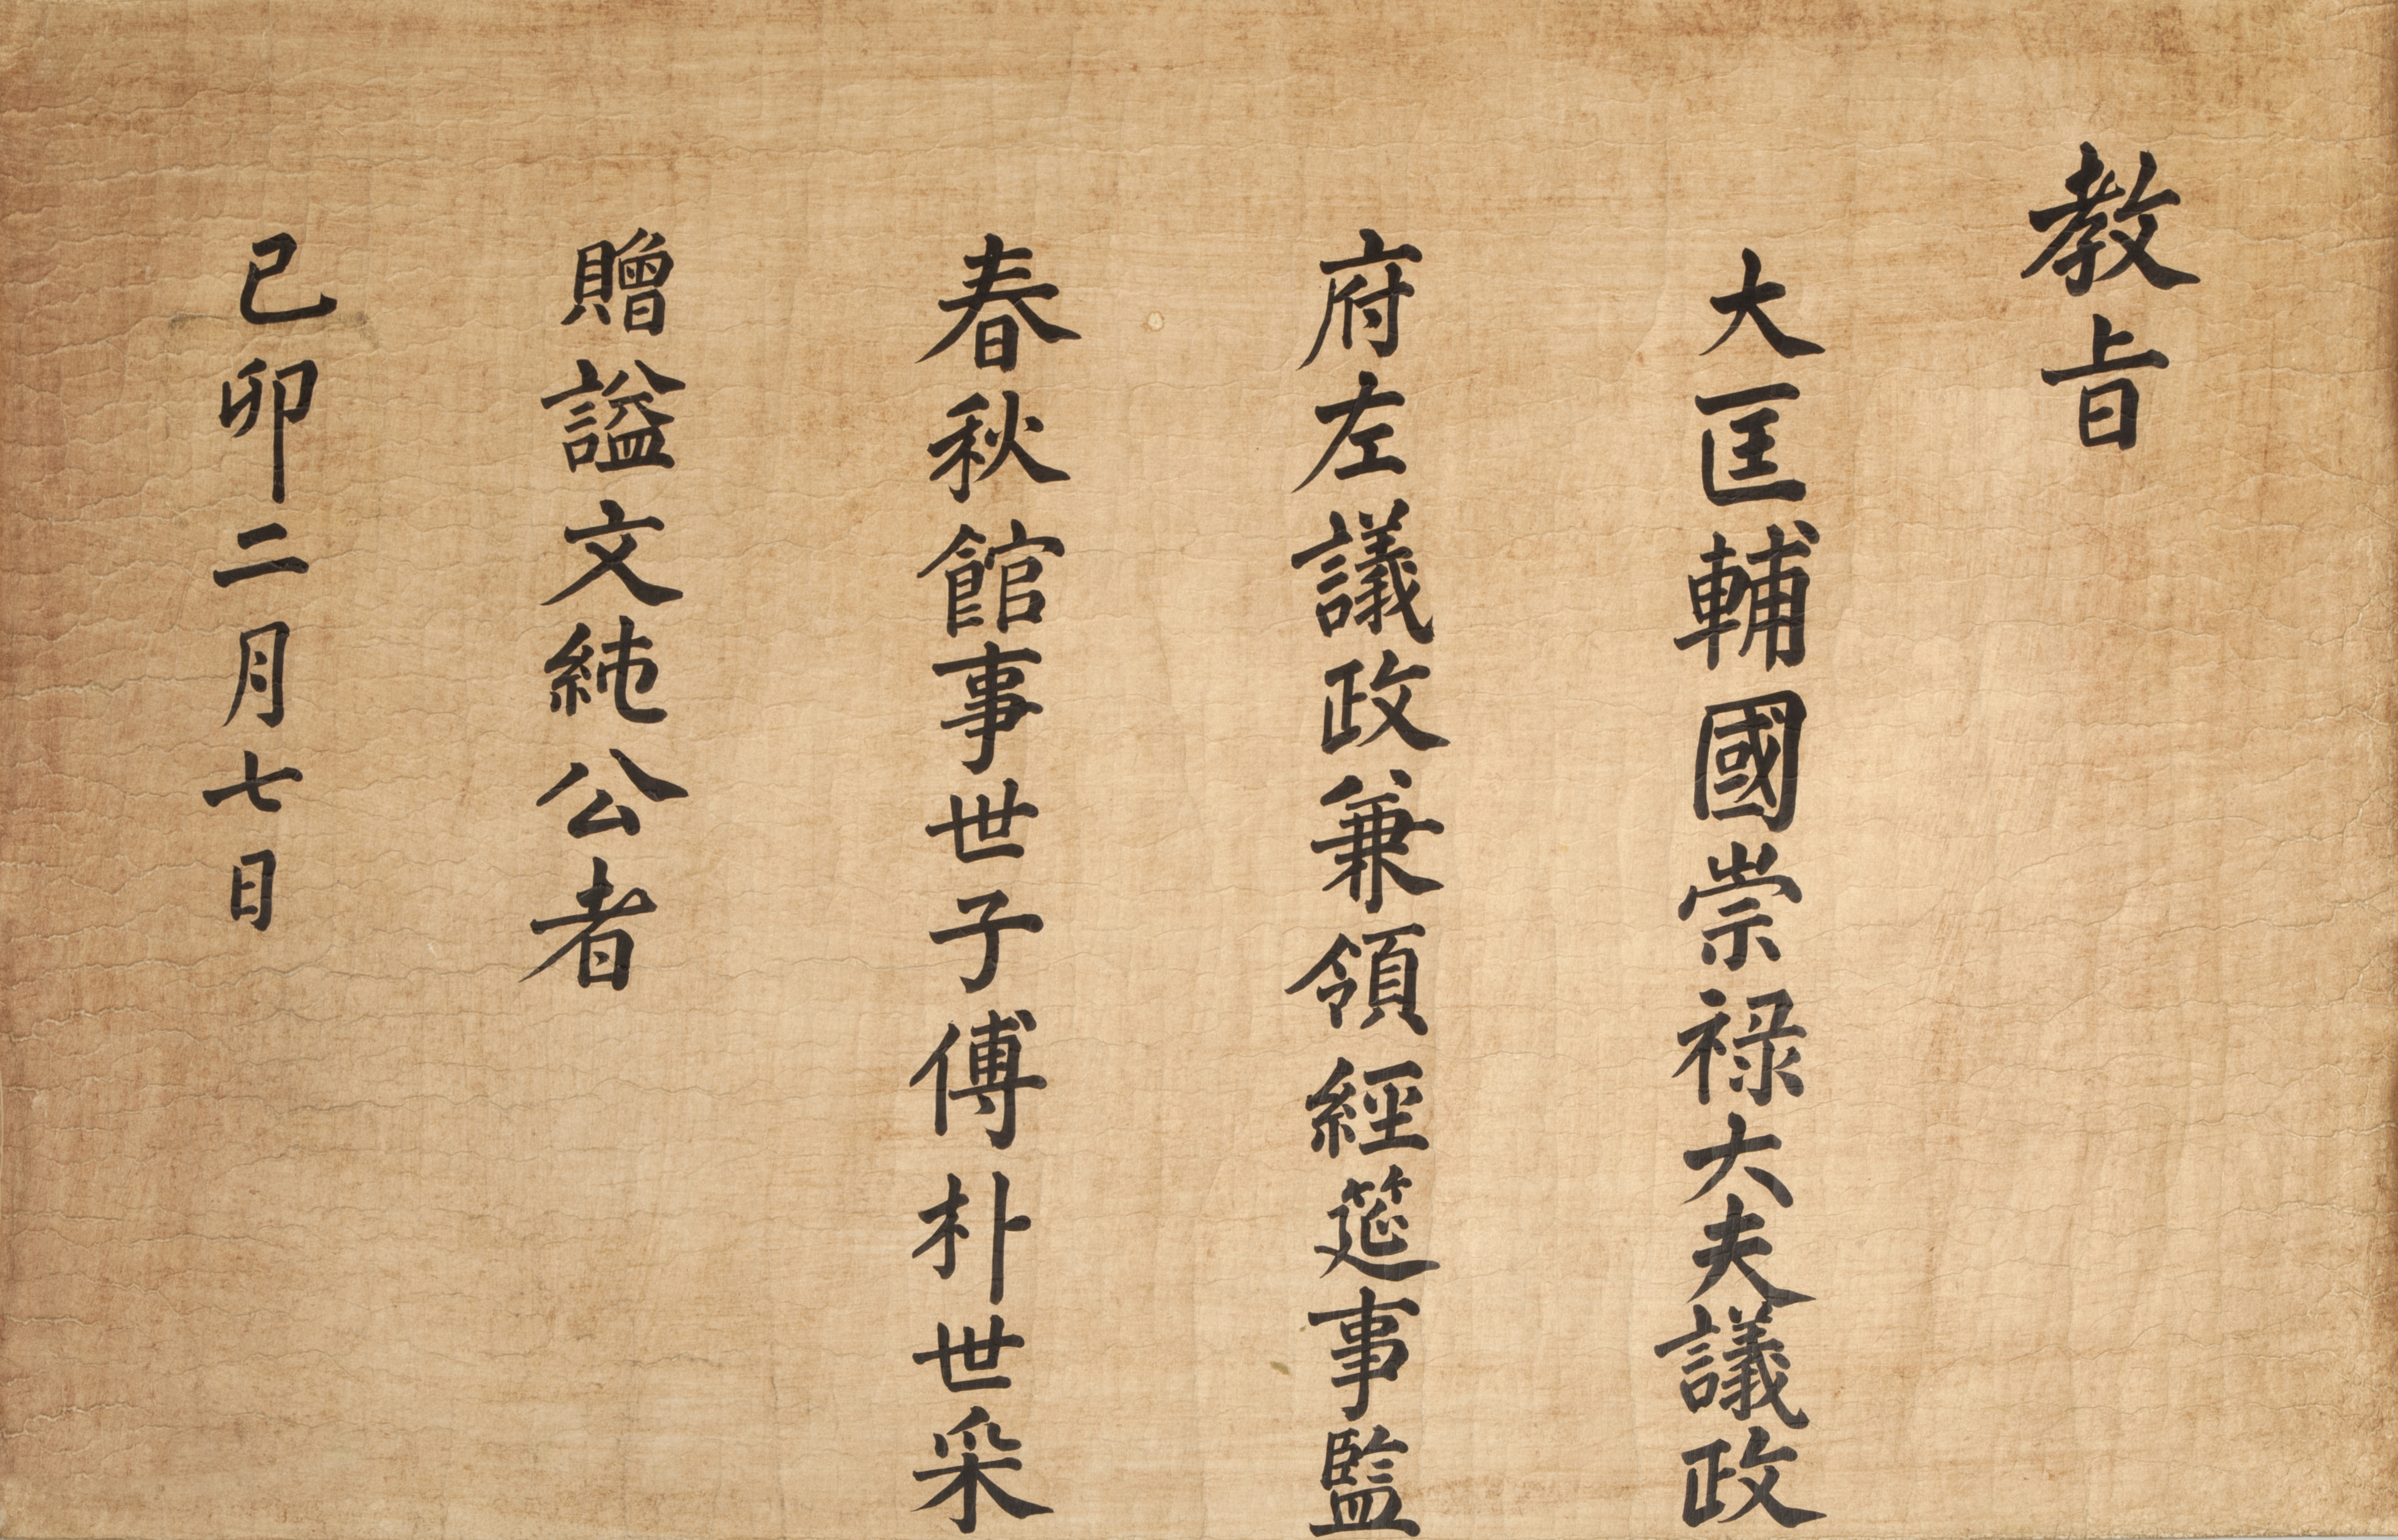 教旨
大匡輔國崇禄大夫議政
府左議政兼領經筵事監
春秋館事世子傅朴世采
贈謚文純公者
己卯二月七日